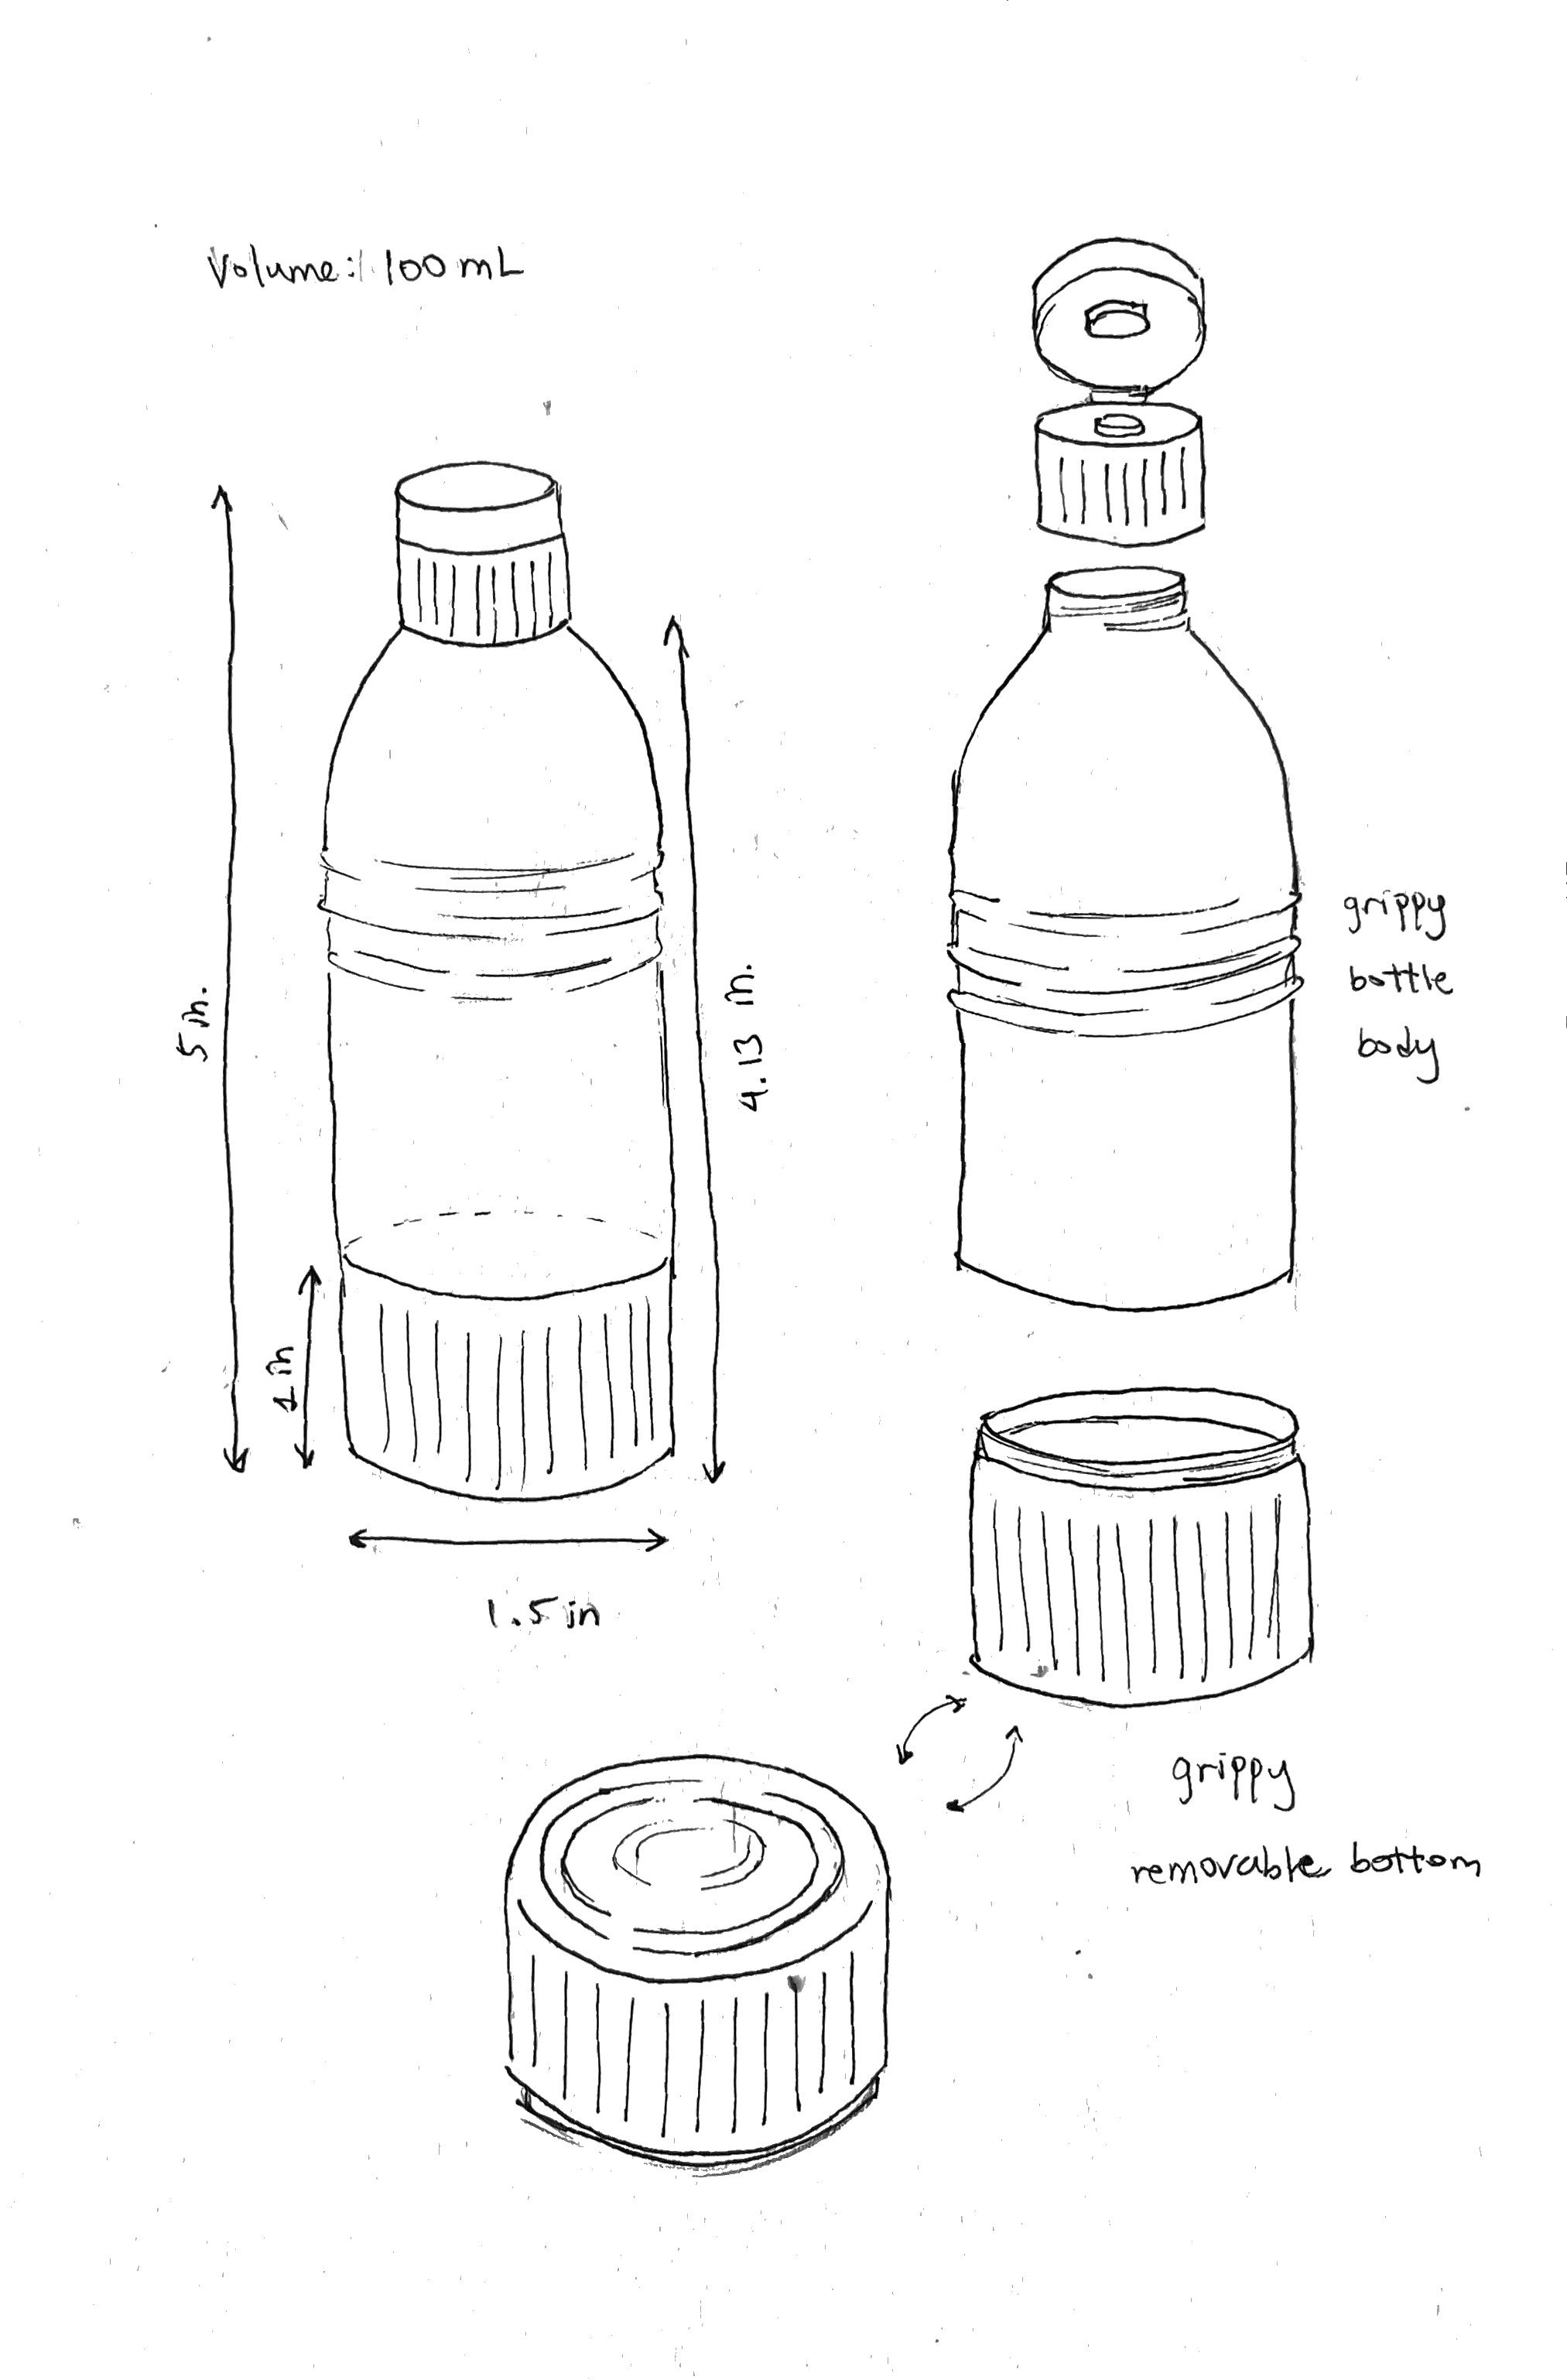 Volume: 100 mL
5 in.
4.13 in.
1 in
1.5 in
grippy
bottle
body
grippy
removable bottom